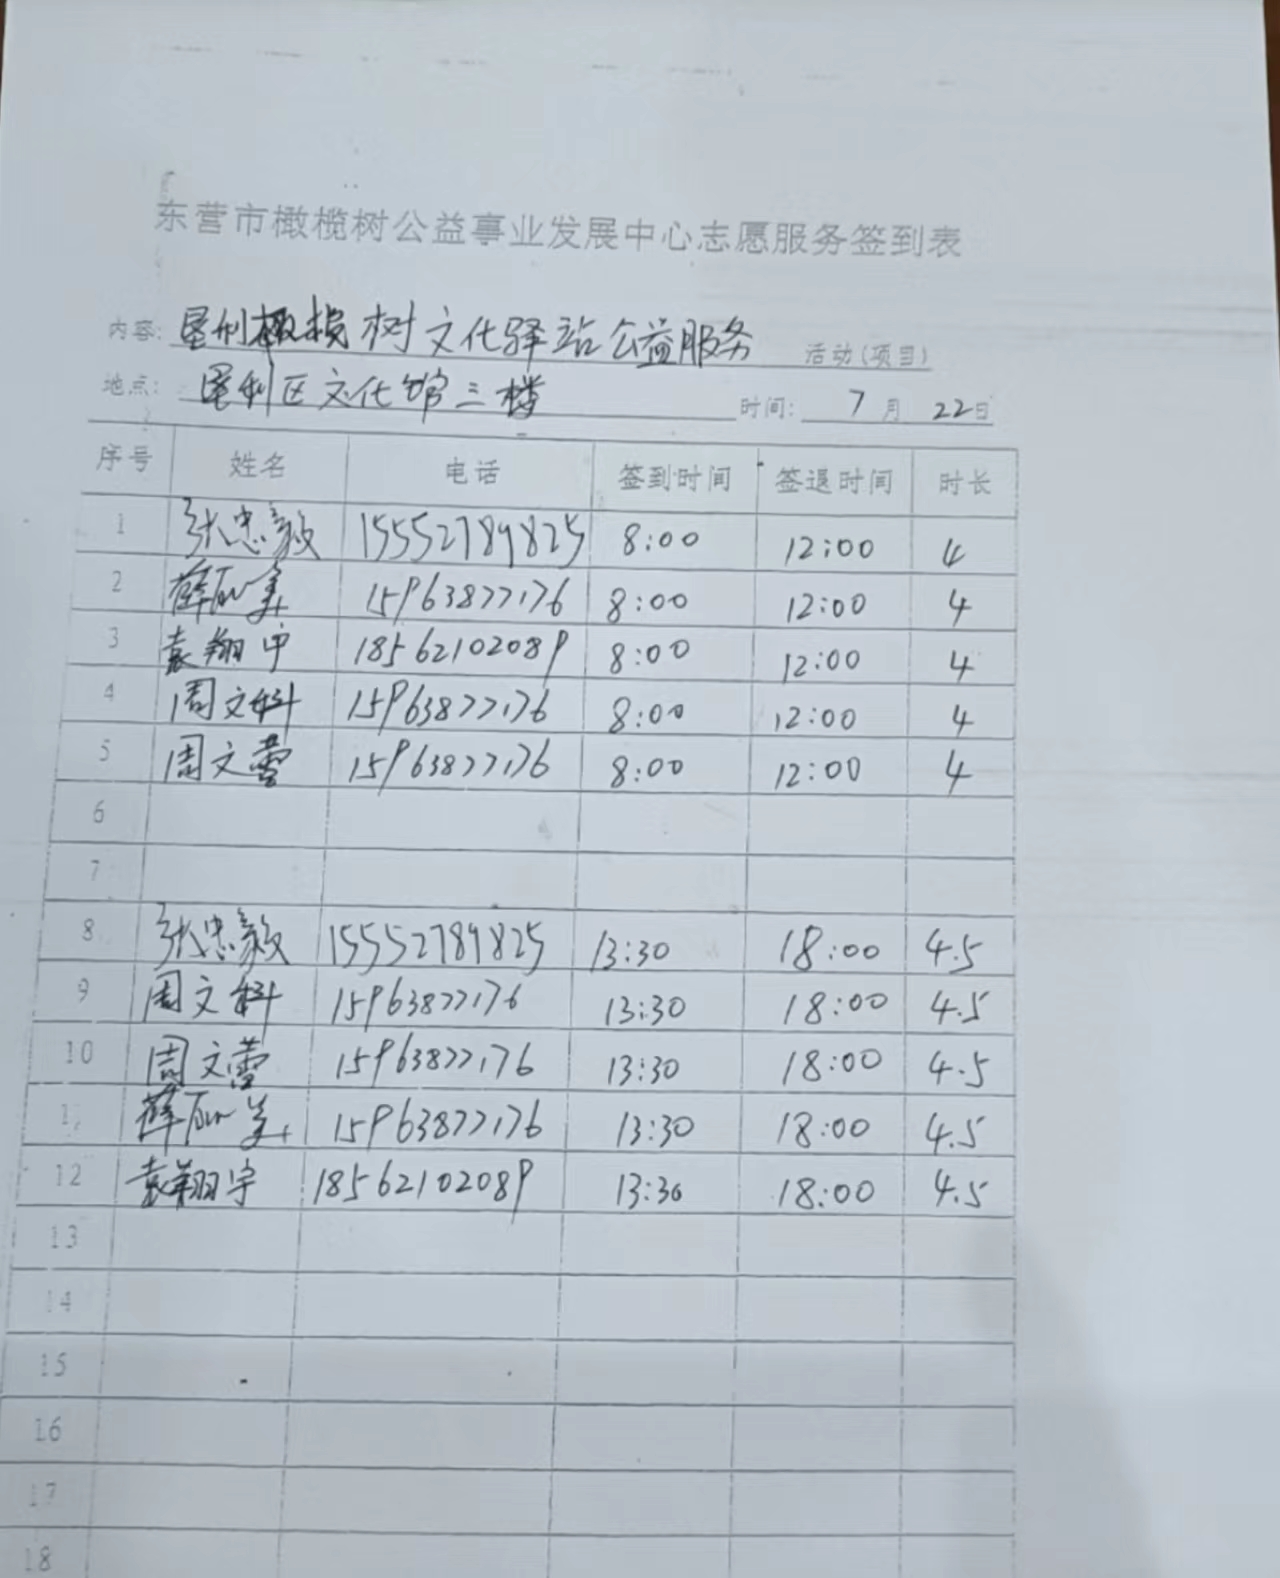 东营市橄榄树公益事业发展中心志愿服务签到表
内容: 垦利橄榄树文化驿站公益服务 活动(项目)
地点: 垦利区文化馆三楼 时间: 7月22日
序号 姓名 电话 签到时间 签退时间 时长
1 张忠毅 15552789825 8:00 12:00 4
2 薛 美 15963877176 8:00 12:00 4
3 袁翔宇 18562102089 8:00 12:00 4
4 周文科 15963877176 8:00 12:00 4
5 周文蕾 15963877176 8:00 12:00 4
6
7
8 张忠毅 15552789825 13:30 18:00 4.5
9 周文科 15963877176 13:30 18:00 4.5
10 周文蕾 15963877176 13:30 18:00 4.5
11 薛 美 15963877176 13:30 18:00 4.5
12 袁翔宇 18562102089 13:30 18:00 4.5
13
14
15
16
17
18